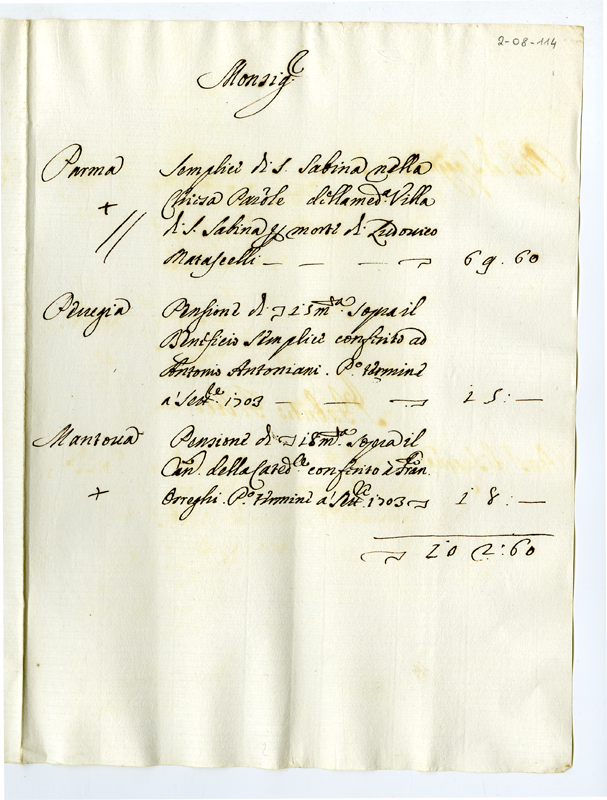 2-08-114
Monsig.e
Parma Semplice di S. Sabina nella
+ Chiesa Paĩole della med.a Villa
// di S. Sabina p morte di Ludovico
Matascelli — — — 69.60
Perugia Pensione di 15 m.ta sopra il
Beneficio semplice conferito ad
Antonio Antoniani. P.o termine
a Sett.e 1703 — — 15:—
Mantoua Pensione di 18 m.ta sopra il
Can. della Cated.le conferito à Fran.
+ Orreghi. P.o termine a Sett.e 1703 18:—
102:60